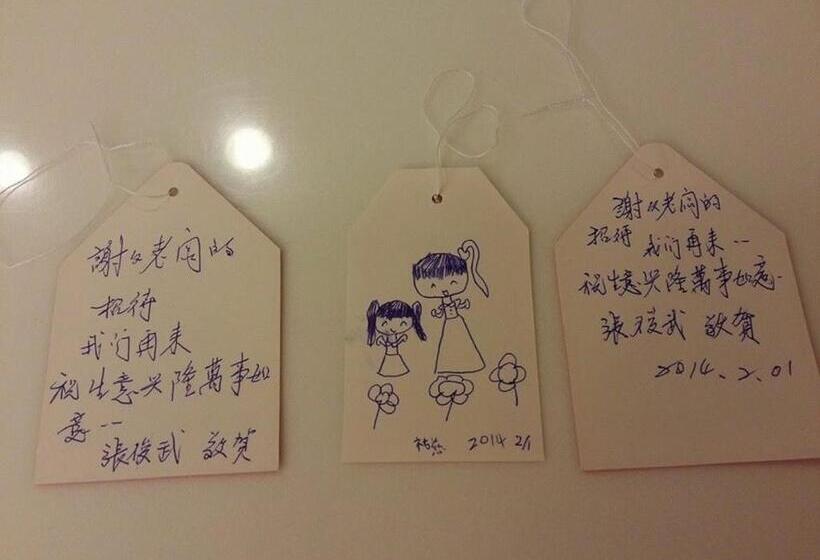 謝々老闆的
招待
我们再来
祝生意兴隆萬事如
意--
張俊武 敬賀
2014 2/1
謝々老闆的
招待 我们再来--
祝生意兴隆萬事如意.
張俊武 敬賀
2014.2.01